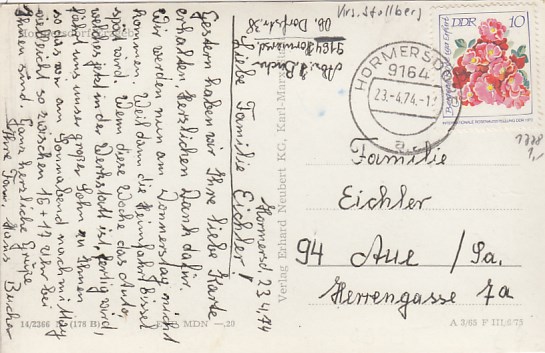 Hormersd. 23.4.74
Liebe Familie Eichler!
Gestern haben wir Ihre liebe Karte
erhalten. Herzlichen Dank dafür.
Wir werden nun am Donnerstag nicht
kommen. Weil dann die Heimfahrt bissel
spät wird. Wenn diese Woche das Auto,
welches jetzt in der Werkstatt ist, fertig wird,
fährt uns unser großer Sohn zu Ihnen
so das wir am Sonnabend nachmittag
vielleicht so zwischen 16 + 17 Uhr bei
Ihnen sind. Ganz herzliche Grüße
Ihre Fam. Hans Bucher
Abs. H. Bucher
9164 Hormersd.
Ob. Dorfstr. 38
Krs. Stollberg
HORMERSDORF
9164
23.-4.74.-1
a
DDR 10
1778
1,-
Familie
Eichler
94 Aue / Sa.
Herrengasse 7a
Verlag Erhard Neubert KG, Karl-Marx-Stadt
14/2366 (178 B) MDN —,20
A 2/65 F III/6/75